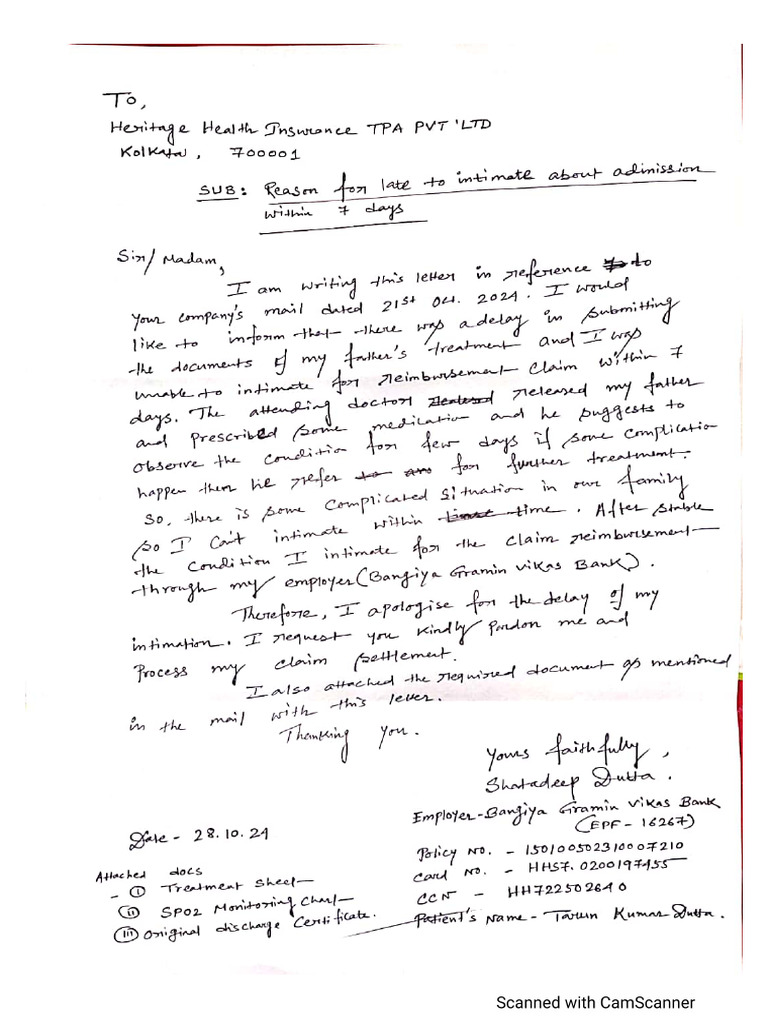 To,
Heritage Health Insurance TPA PVT 'LTD
Kolkata, 700001
SUB: Reason for late to intimate about adimission
within 7 days
Sir/Madam,
I am writing this letter in reference to
your company's mail dated 21st Oct. 2024. I would
like to inform that there was a delay in submitting
the documents of my father's treatment and I was
unable to intimate for reimbursement claim within 7
days. The attending doctor released my father
and prescribed some medication and he suggests to
observe the condition for few days if some complication
happen then he refer for further treatment.
So, there is some complicated situation in our family
so I can't intimate within time. After stable
the condition I intimate for the claim reimbursement
through my employer (Bangiya Gramin Vikas Bank).
Therefore, I apologise for the delay of my
intimation. I request you kindly pardon me and
process my claim settlement.
I also attached the required document as mentioned
in the mail with this letter.
Thanking you.
Yours faithfully,
Shatadeep Dutta.
Employer-Bangiya Gramin Vikas Bank
(EPF - 16267)
Date - 28.10.24
Policy No. - 150100502310007210
Card No. - HHS7.0200197455
CCN - HH722502640
Patient's Name - Tarun Kumar Dutta.
Attached docs
- (i) Treatment Sheet
(ii) SPO2 Monitoring Chart
(iii) Original discharge Certificate.
Scanned with CamScanner